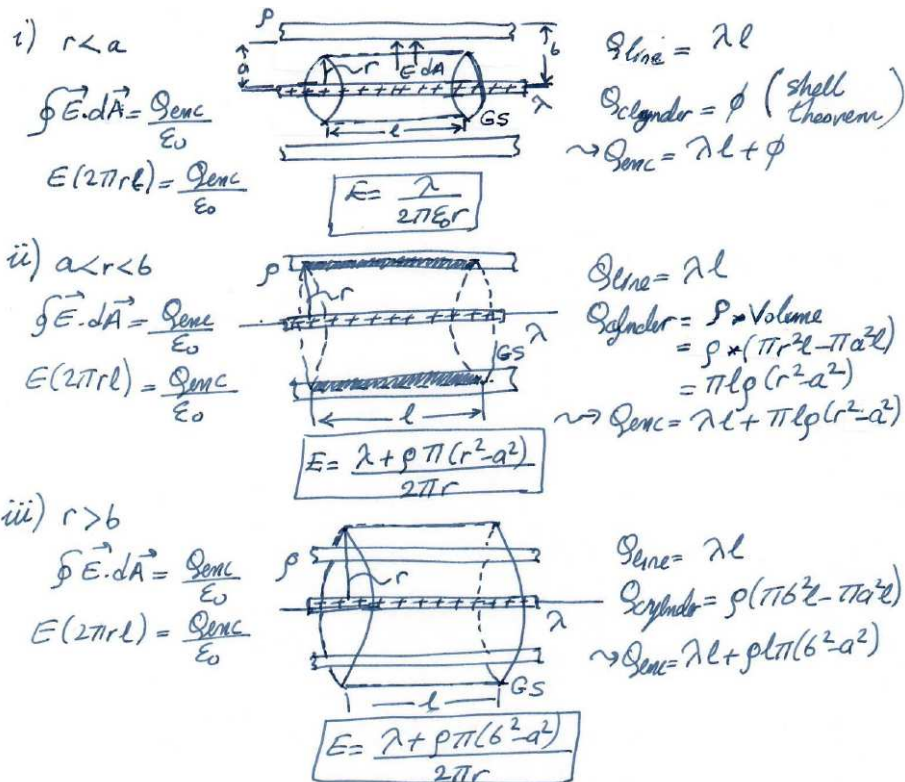 i) r<a
∮E⃗.dA⃗ = Qenc/ε₀
E(2πrl) = Qenc/ε₀
ρ
a
r
E dA
b
λ
l
GS
E = λ/2πε₀r
Qline = λl
Qclynder = ϕ (shell theorem)
⇝ Qenc = λl + ϕ
ii) a<r<b
∮E⃗.dA⃗ = Qenc/ε₀
E(2πrl) = Qenc/ε₀
ρ
r
λ
GS
l
E = λ + ρπ(r²-a²)/2πr
Qline = λl
Qcylnder = ρ * Volume
= ρ * (πr²l - πa²l)
= πlρ(r²-a²)
⇝ Qenc = λl + πlρ(r²-a²)
iii) r>b
∮E⃗.dA⃗ = Qenc/ε₀
E(2πrl) = Qenc/ε₀
ρ
r
λ
l
GS
E = λ + ρπ(b²-a²)/2πr
Qline = λl
Qcylnder = ρ(πb²l - πa²l)
⇝ Qenc = λl + ρlπ(b²-a²)